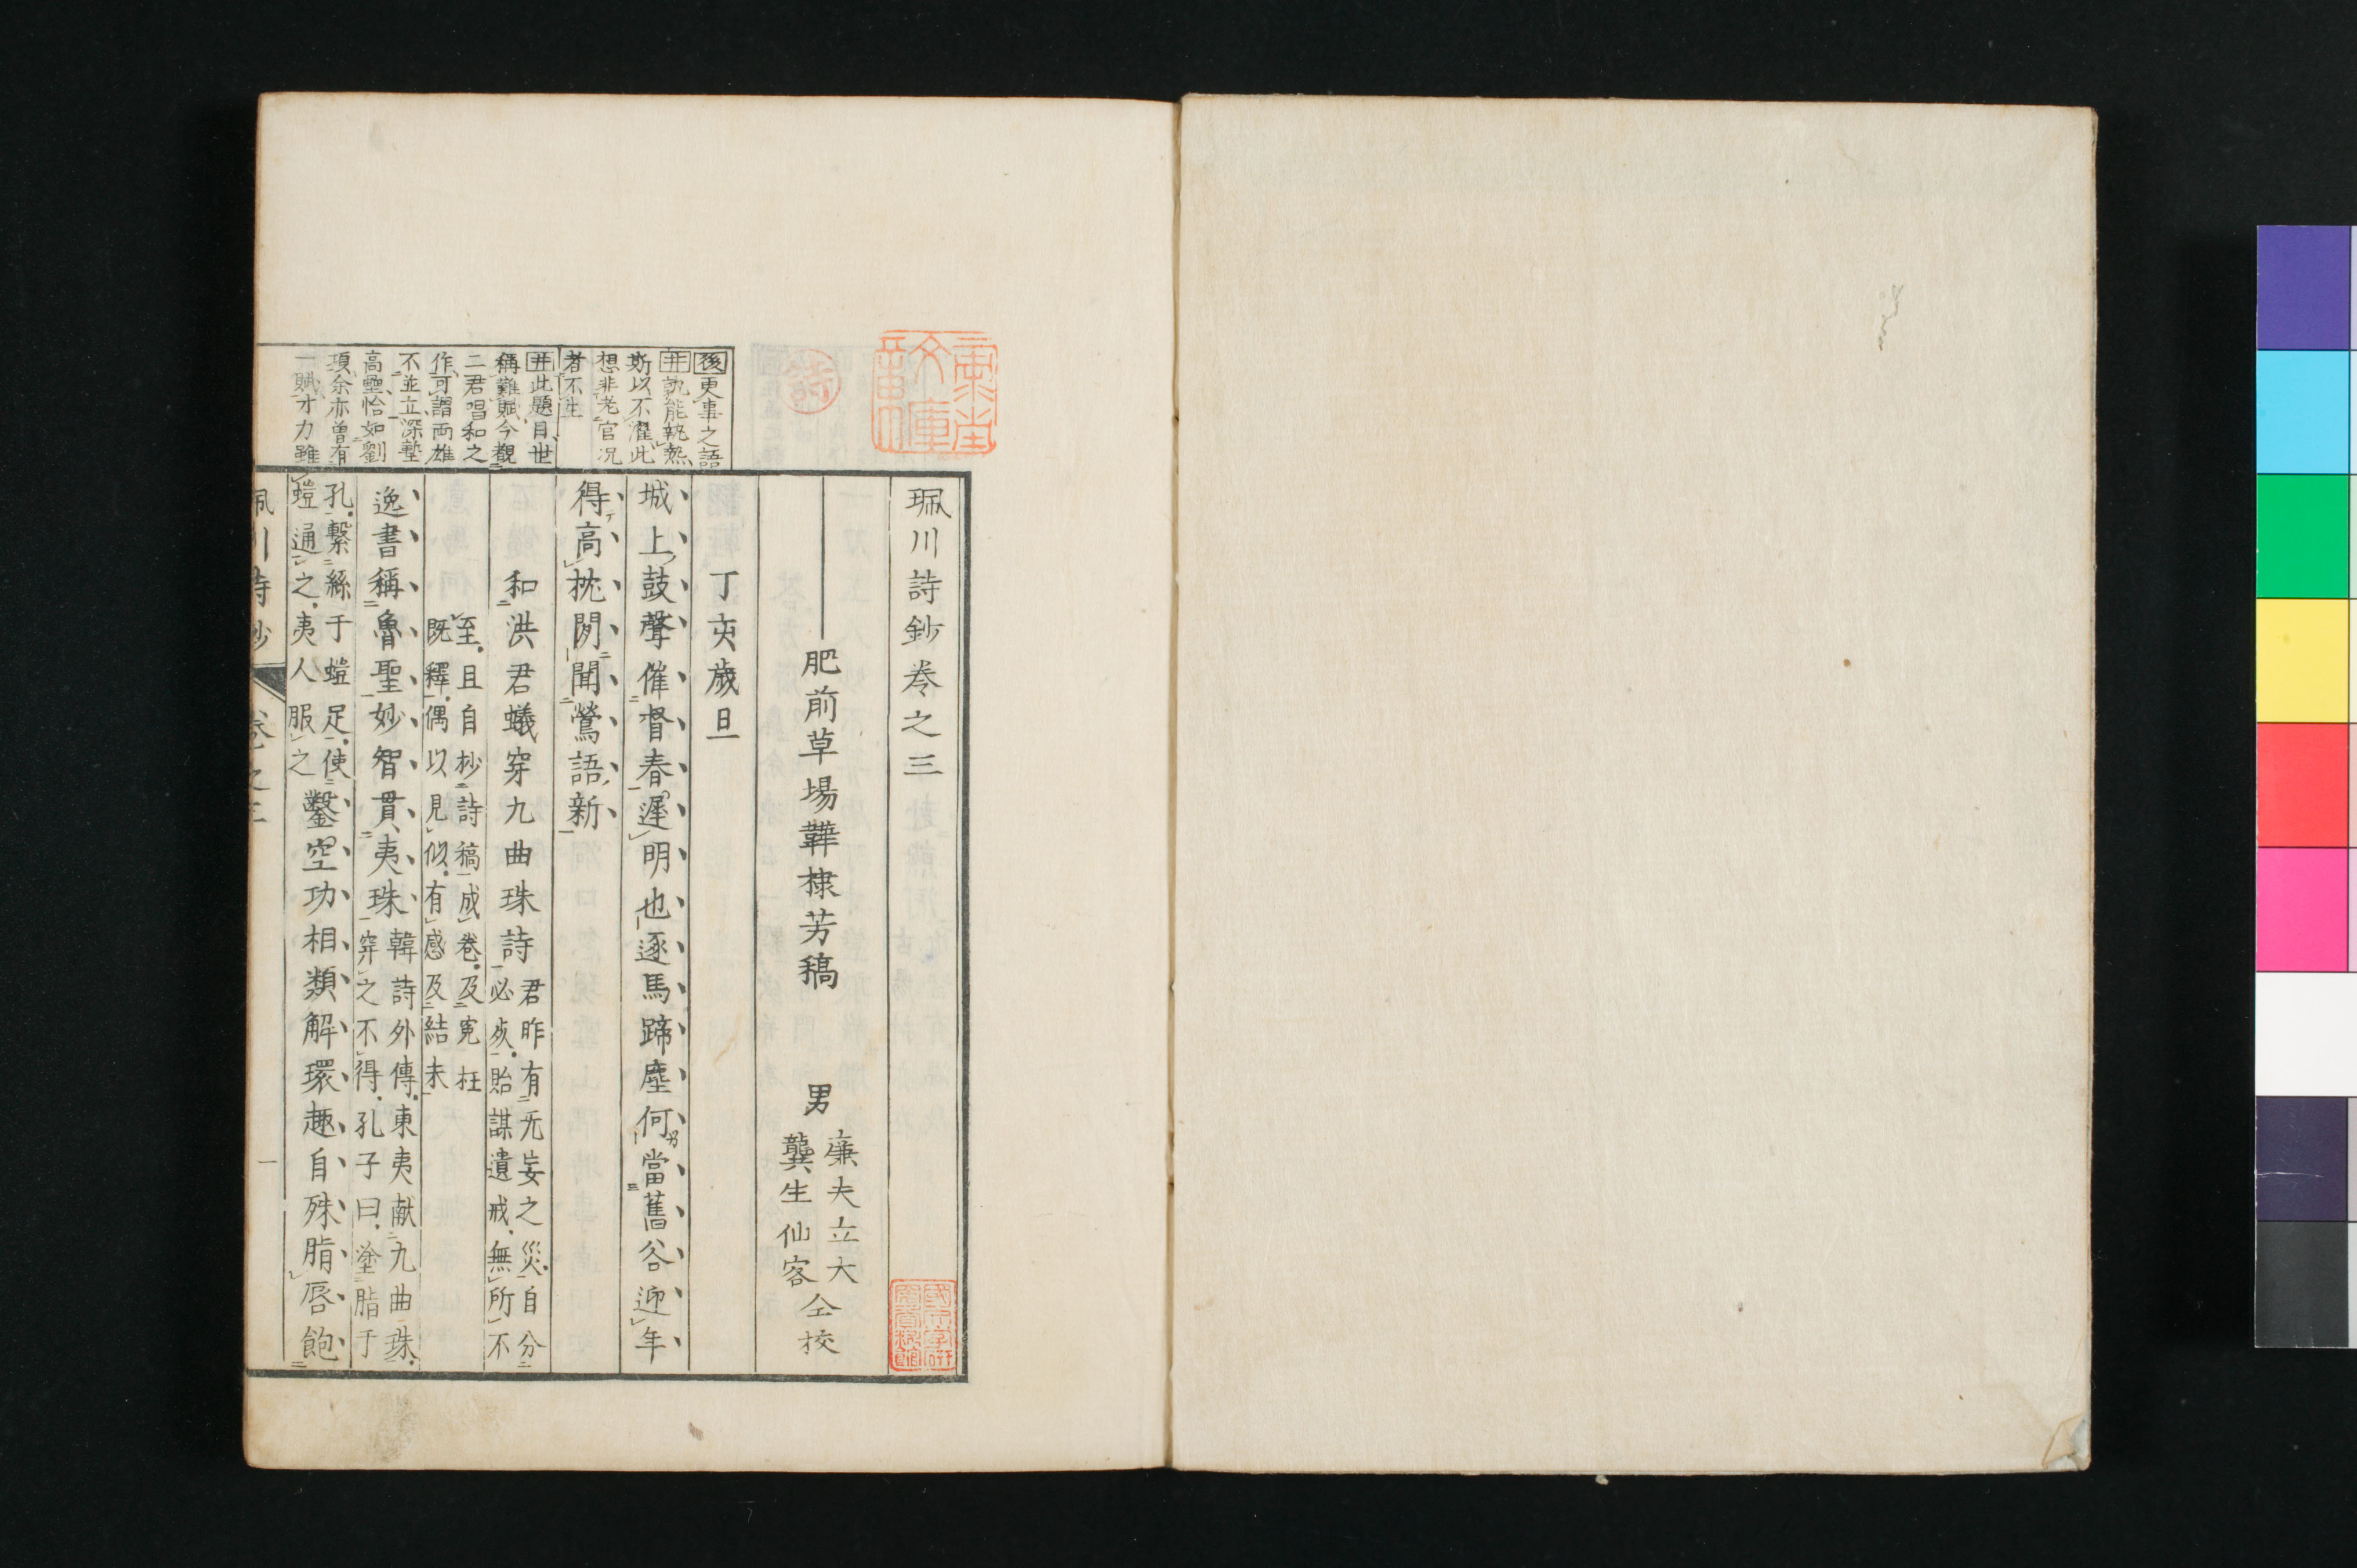 珮川詩鈔卷之三
肥前草場韡棣芳稿
男
廉夫立大
龔生仙客
仝校
丁亥歲旦
城上鼓聲催督春遲明也逐馬蹄塵何當舊谷迎年
得高枕閒聞鶯語新
和洪君蟻穿九曲珠詩
君昨有无妄之災自分
必死貽謀遺戒無所不
至且自抄詩稿成卷及寃枉
既釋偶以見似有感及結末
逸書稱魯聖妙智貫夷珠
韓詩外傳東夷献九曲珠
穿之不得孔子曰塗脂于
孔繫絲于螘足使
螘通之夷人服之
鑿空功相類解環趣自殊脂唇飽
珮川詩鈔
卷之三
一
後更事之語
井孰能執熱
斯以不濯此
想非老官况
者不生
井此題目世
稱難賦今觀
二君唱和之
作可謂両雄
不並立深塹
高壘恰如劉
項余亦曽有
一賦才力雖
東堂文庫